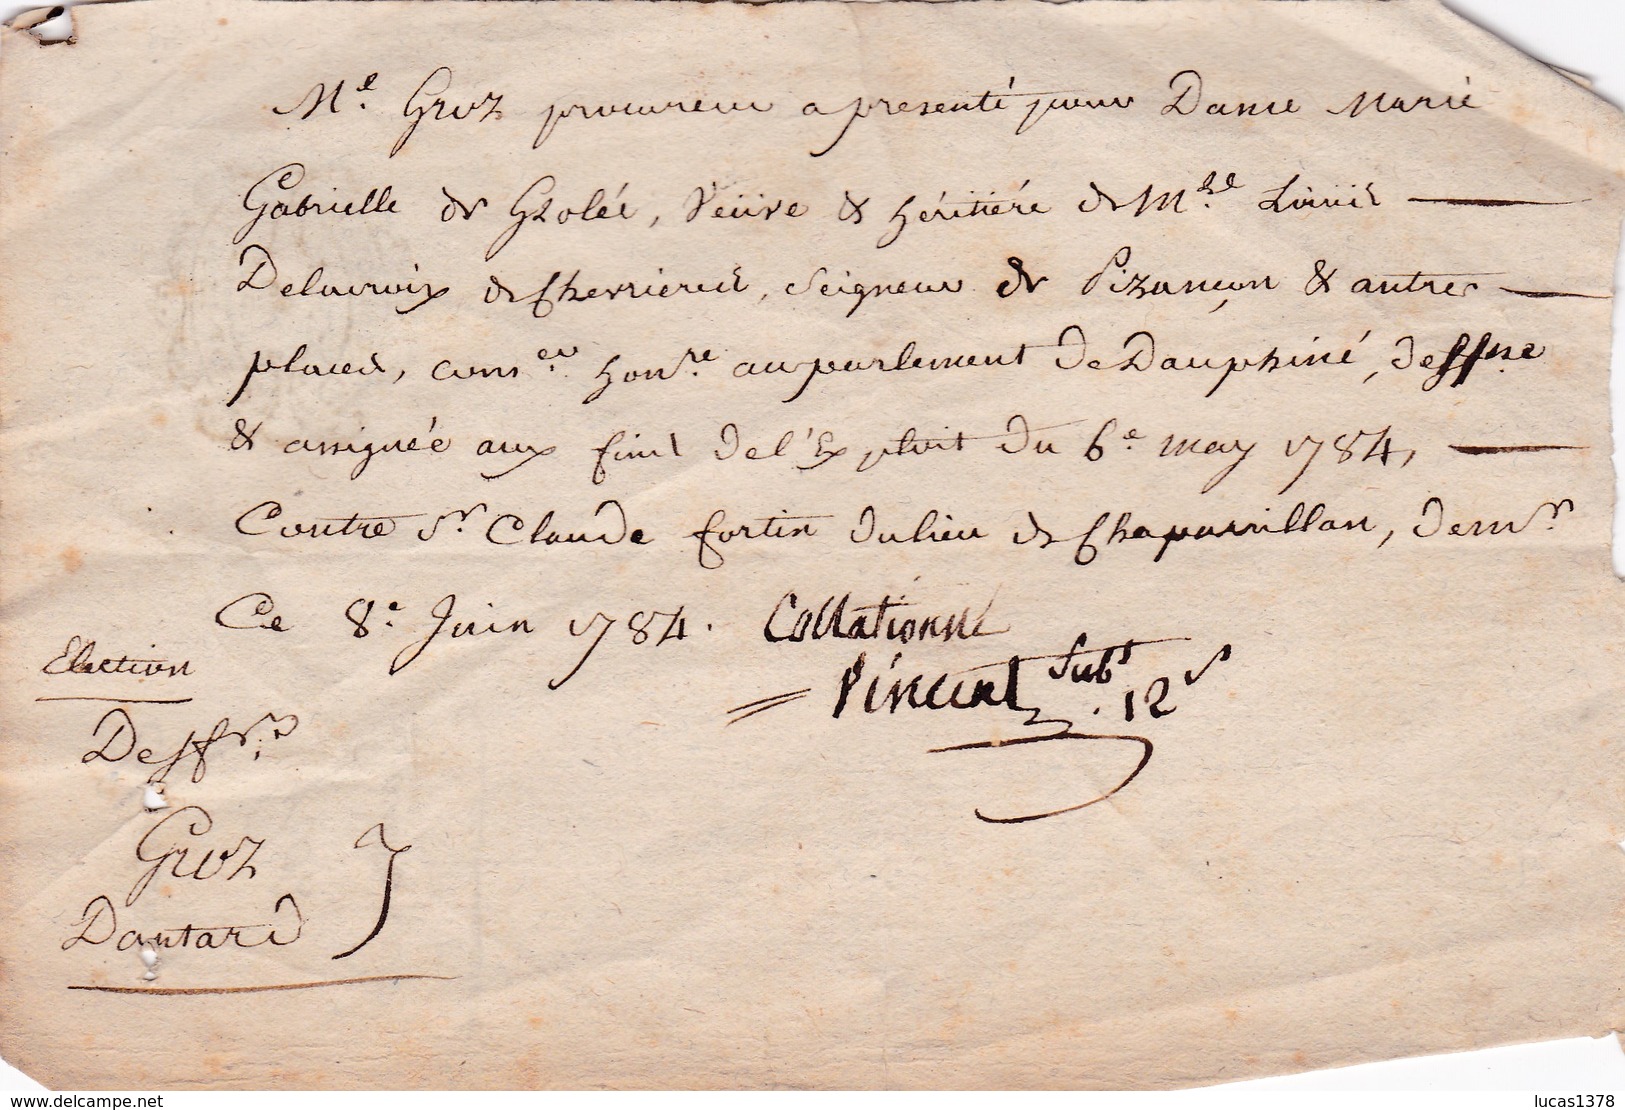 Me. Groz procureur a presenté pour Dame Marie
Gabrielle de Grolée, Veuve & héritiére de Mre. Louis
Delacroix de Chevrieres, Seigneur de Pizançon & autres
places, conser. honre. au parlement de Dauphiné, deffsse
& assignée aux fins de l'Exploit du 6e may 1784,
Contre Sr. Claude fortin du lieu de Chapareillan, demr.
Ce 8e. Juin 1784. Collationné
Vincent Subt. 12s
Election
Deffrs.
Groz
Dantard
www.delcampe.net
lucas1378